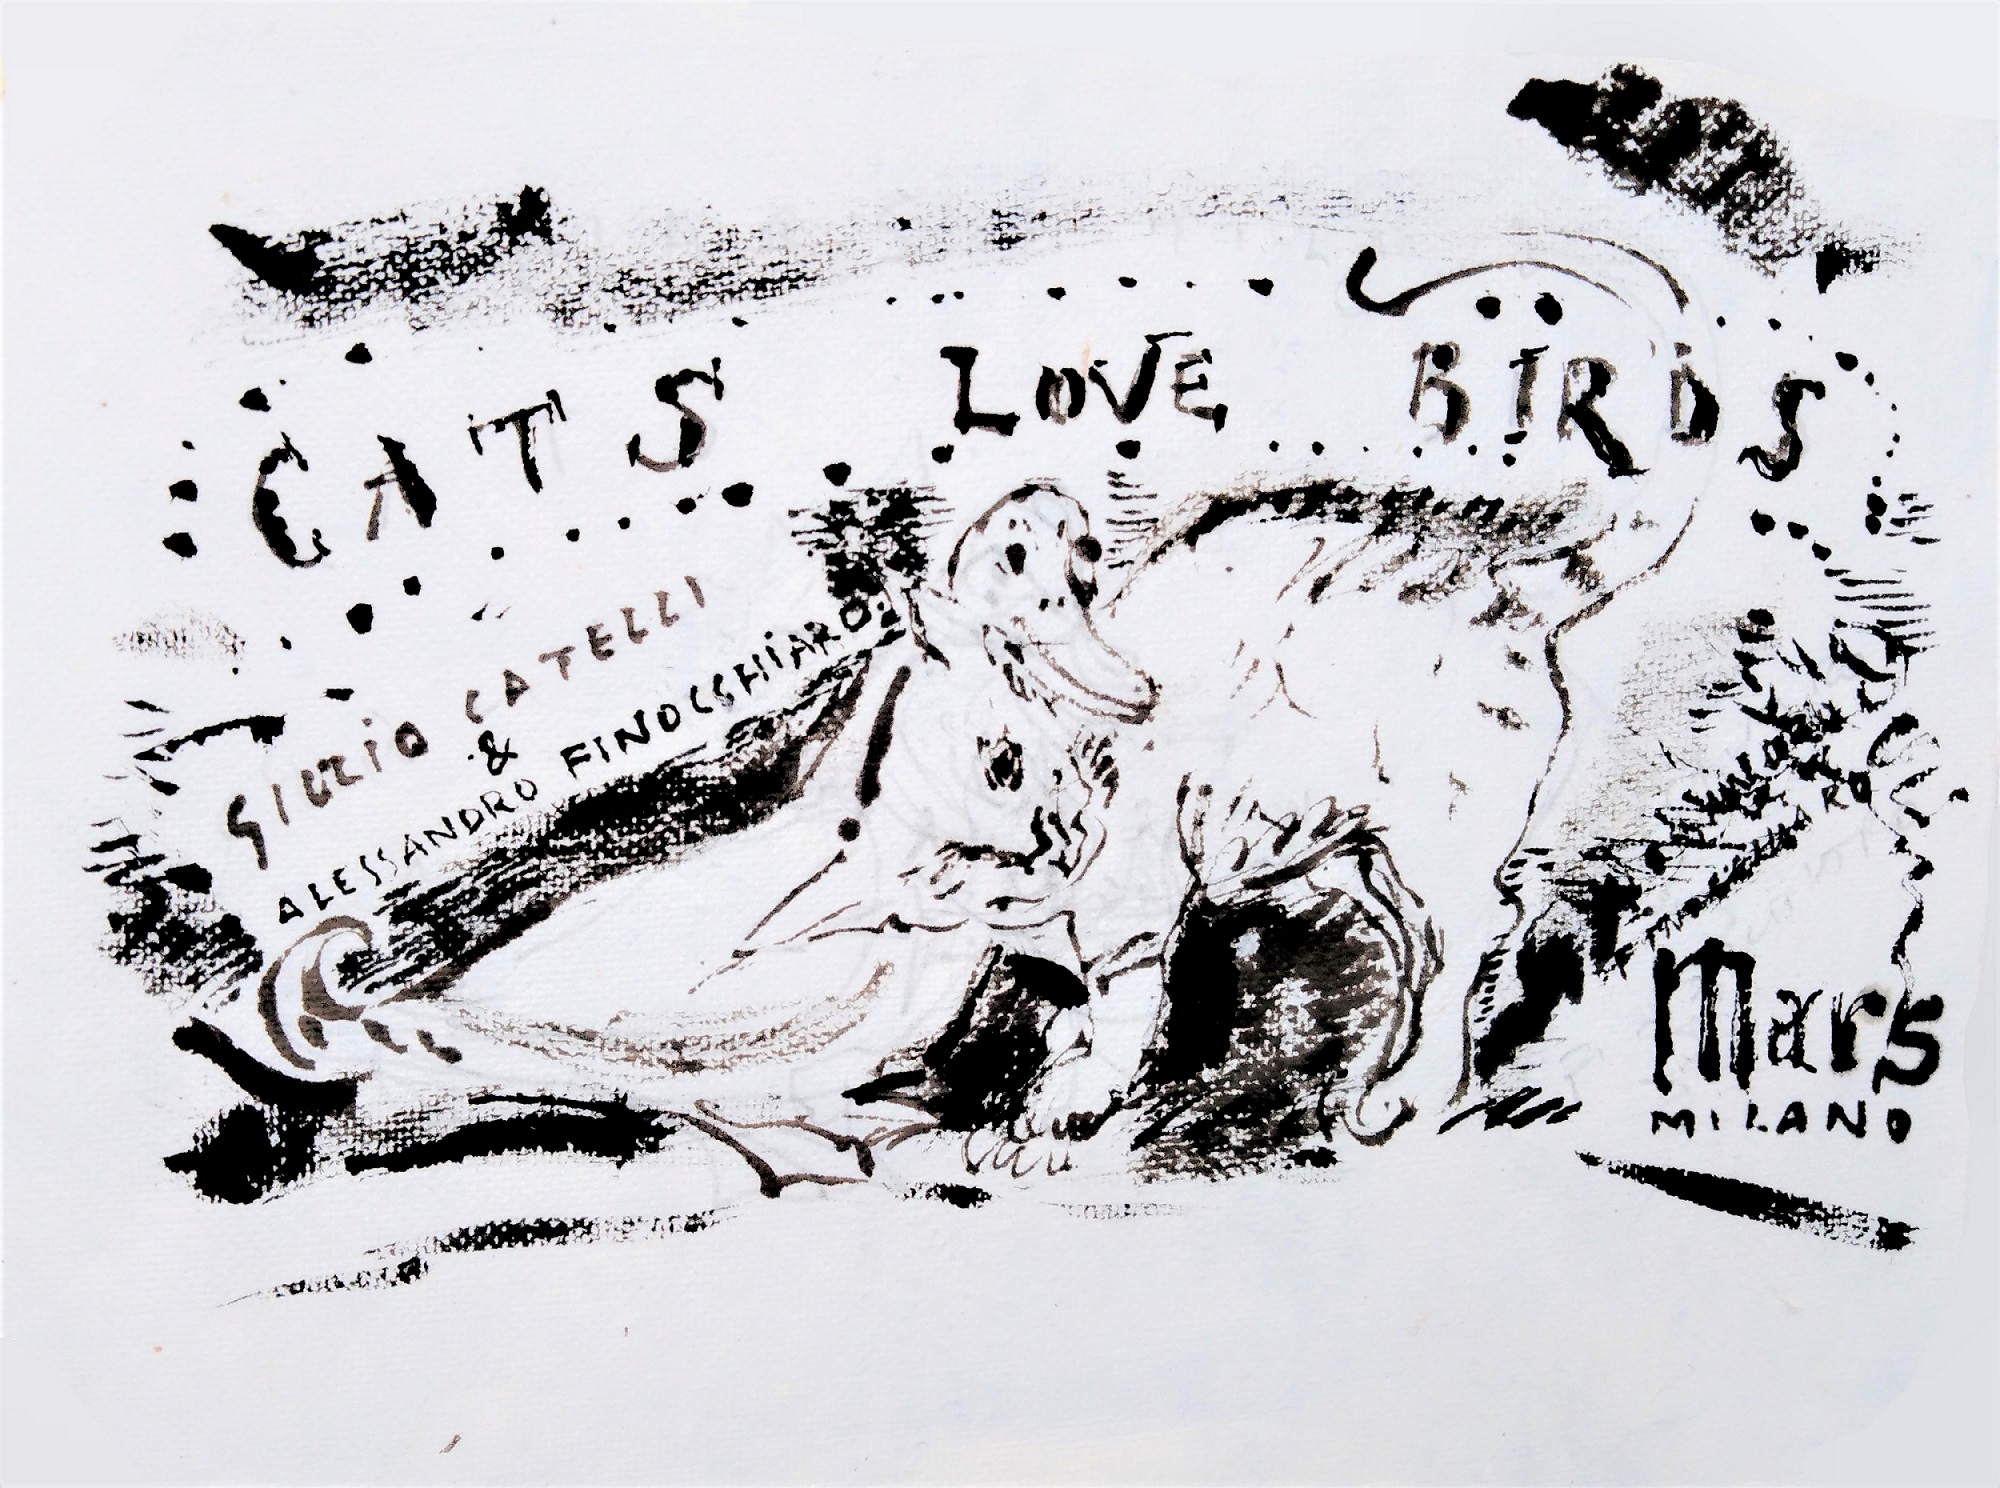 CATS LOVE BIRDS
GIULIO CATELLI
&
ALESSANDRO FINOCCHIARO
Mars
MILANO